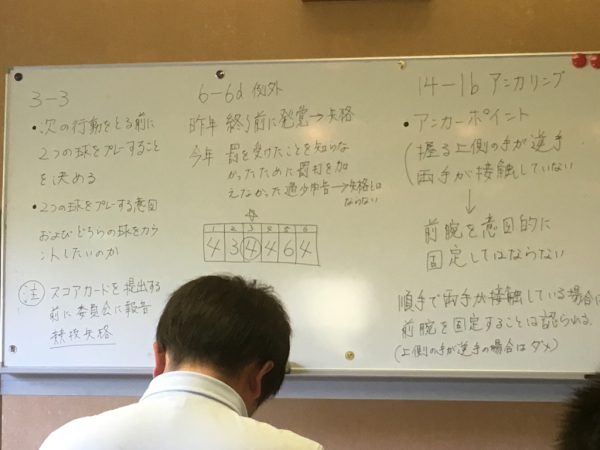 3-3
・次の行動をとる前に
2つの球をプレーすること
を決める
・2つの球をプレーする意図
およびどちらの球をカウ
ントしたいのか
注 スコアカードを提出する
前に委員会に報告
競技失格
6-6d 例外
昨年 終了前に発覚→失格
今年 罰を受けたことを知らな
かったために罰打を加
えなかった過少申告→失格とは
ならない
1 2 3 4 5 6
4 3 4 4 6 4
14-1b アンカリング
・アンカーポイント
(握る上側の手が逆手
両手が接触していない
↓
前腕を意図的に
固定してはならない
順手で両手が接触している場合は
前腕を固定することは認られる
(上側の手が逆手の場合はダメ)